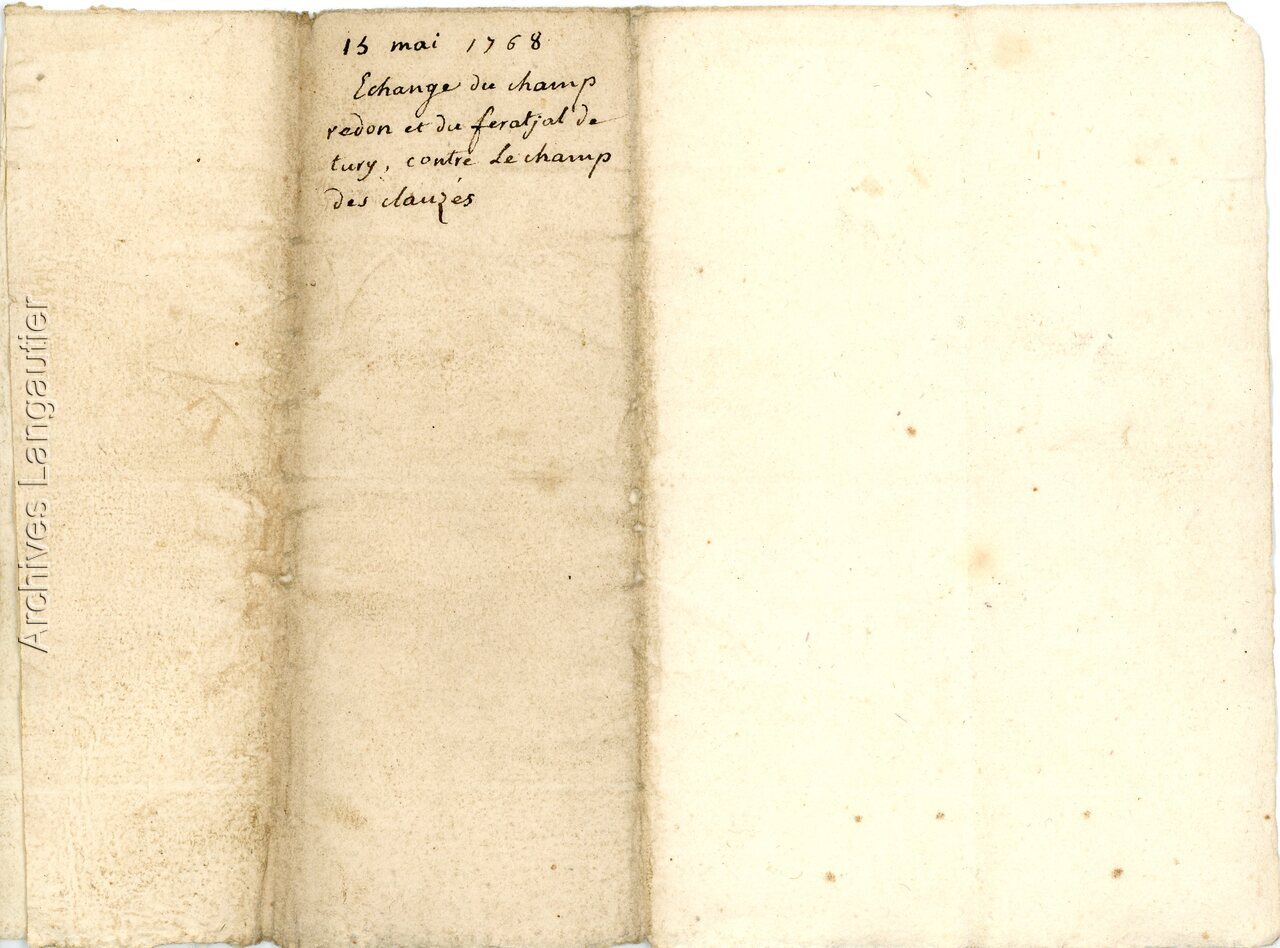 15 mai 1768
Echange du champ
redon et du feratjal de
tury, contre le champ
des clauzés
Archives Langautier